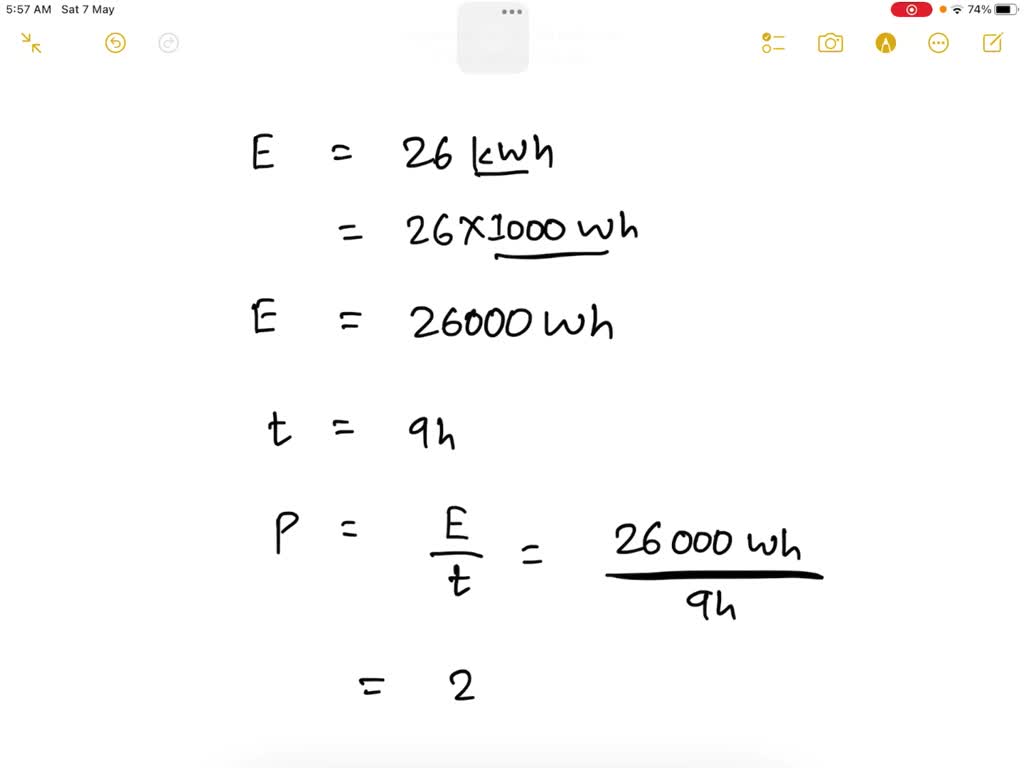 5:57 AM Sat 7 May 74%
E = 26 kwh
= 26×1000 wh
E = 26000 wh
t = 9h
P = E/t = 26000 wh/9h
= 2